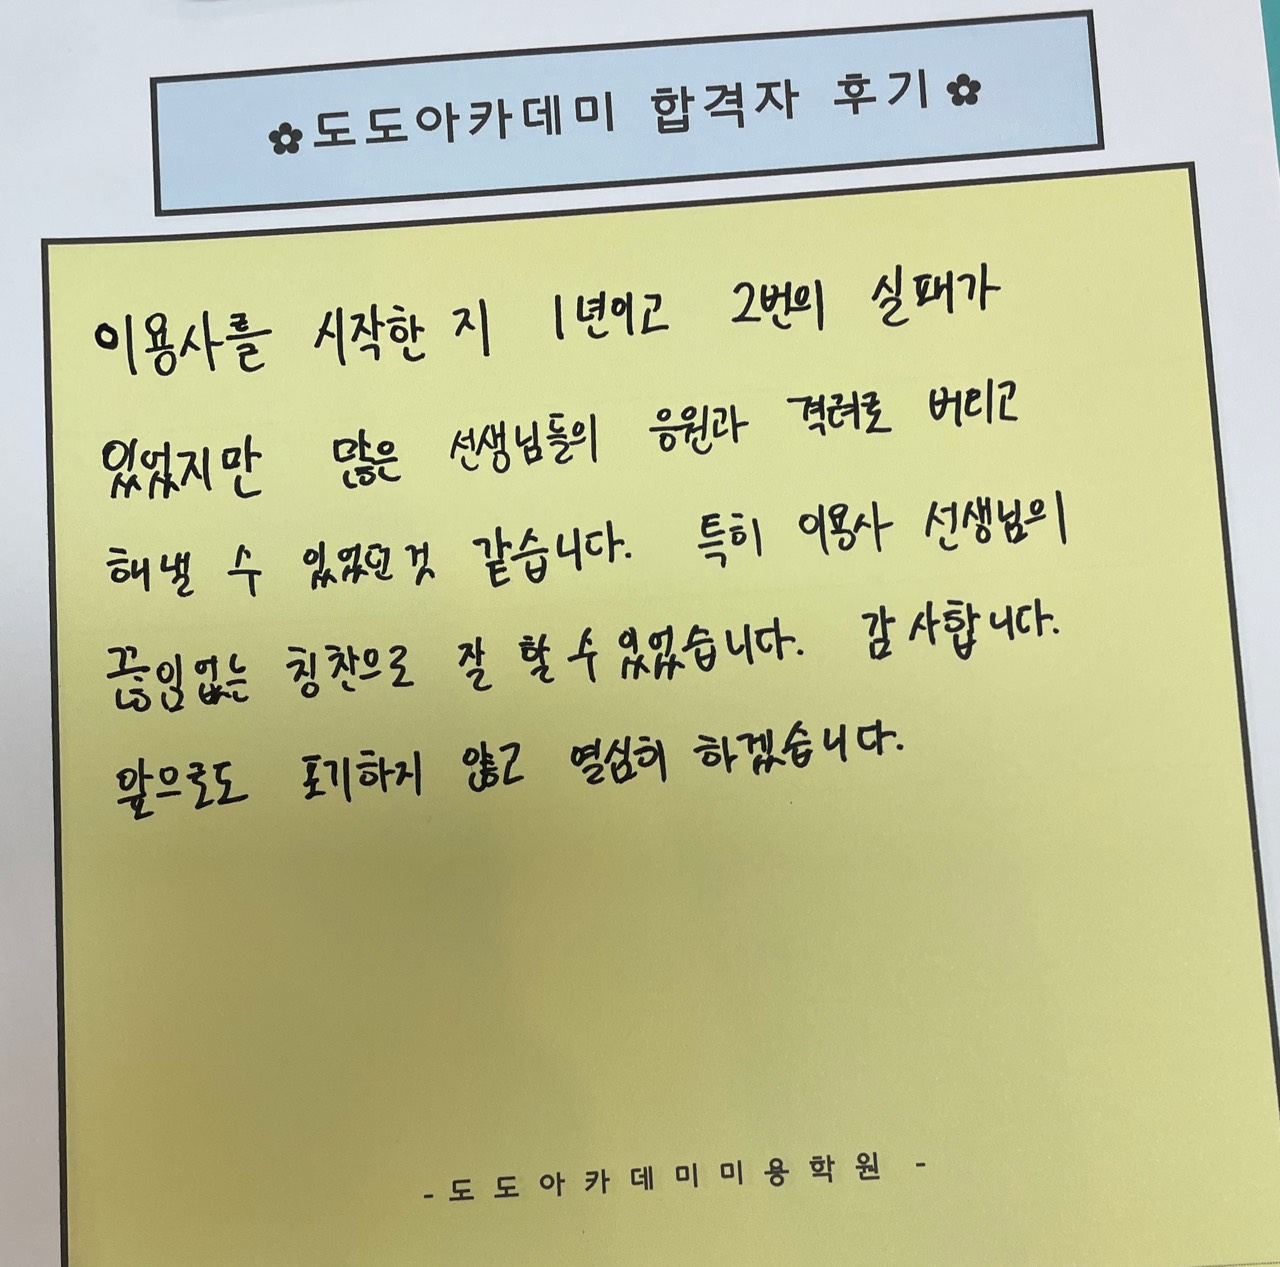 ✿도도아카데미 합격자 후기✿
이용사를 시작한 지 1년이고 2번의 실패가
있었지만 많은 선생님들의 응원과 격려로 버티고
해낼 수 있었던 것 같습니다. 특히 이용사 선생님의
끊임없는 칭찬으로 잘 할 수 있었습니다. 감사합니다.
앞으로도 포기하지 않고 열심히 하겠습니다.
- 도도아카데미미용학원 -